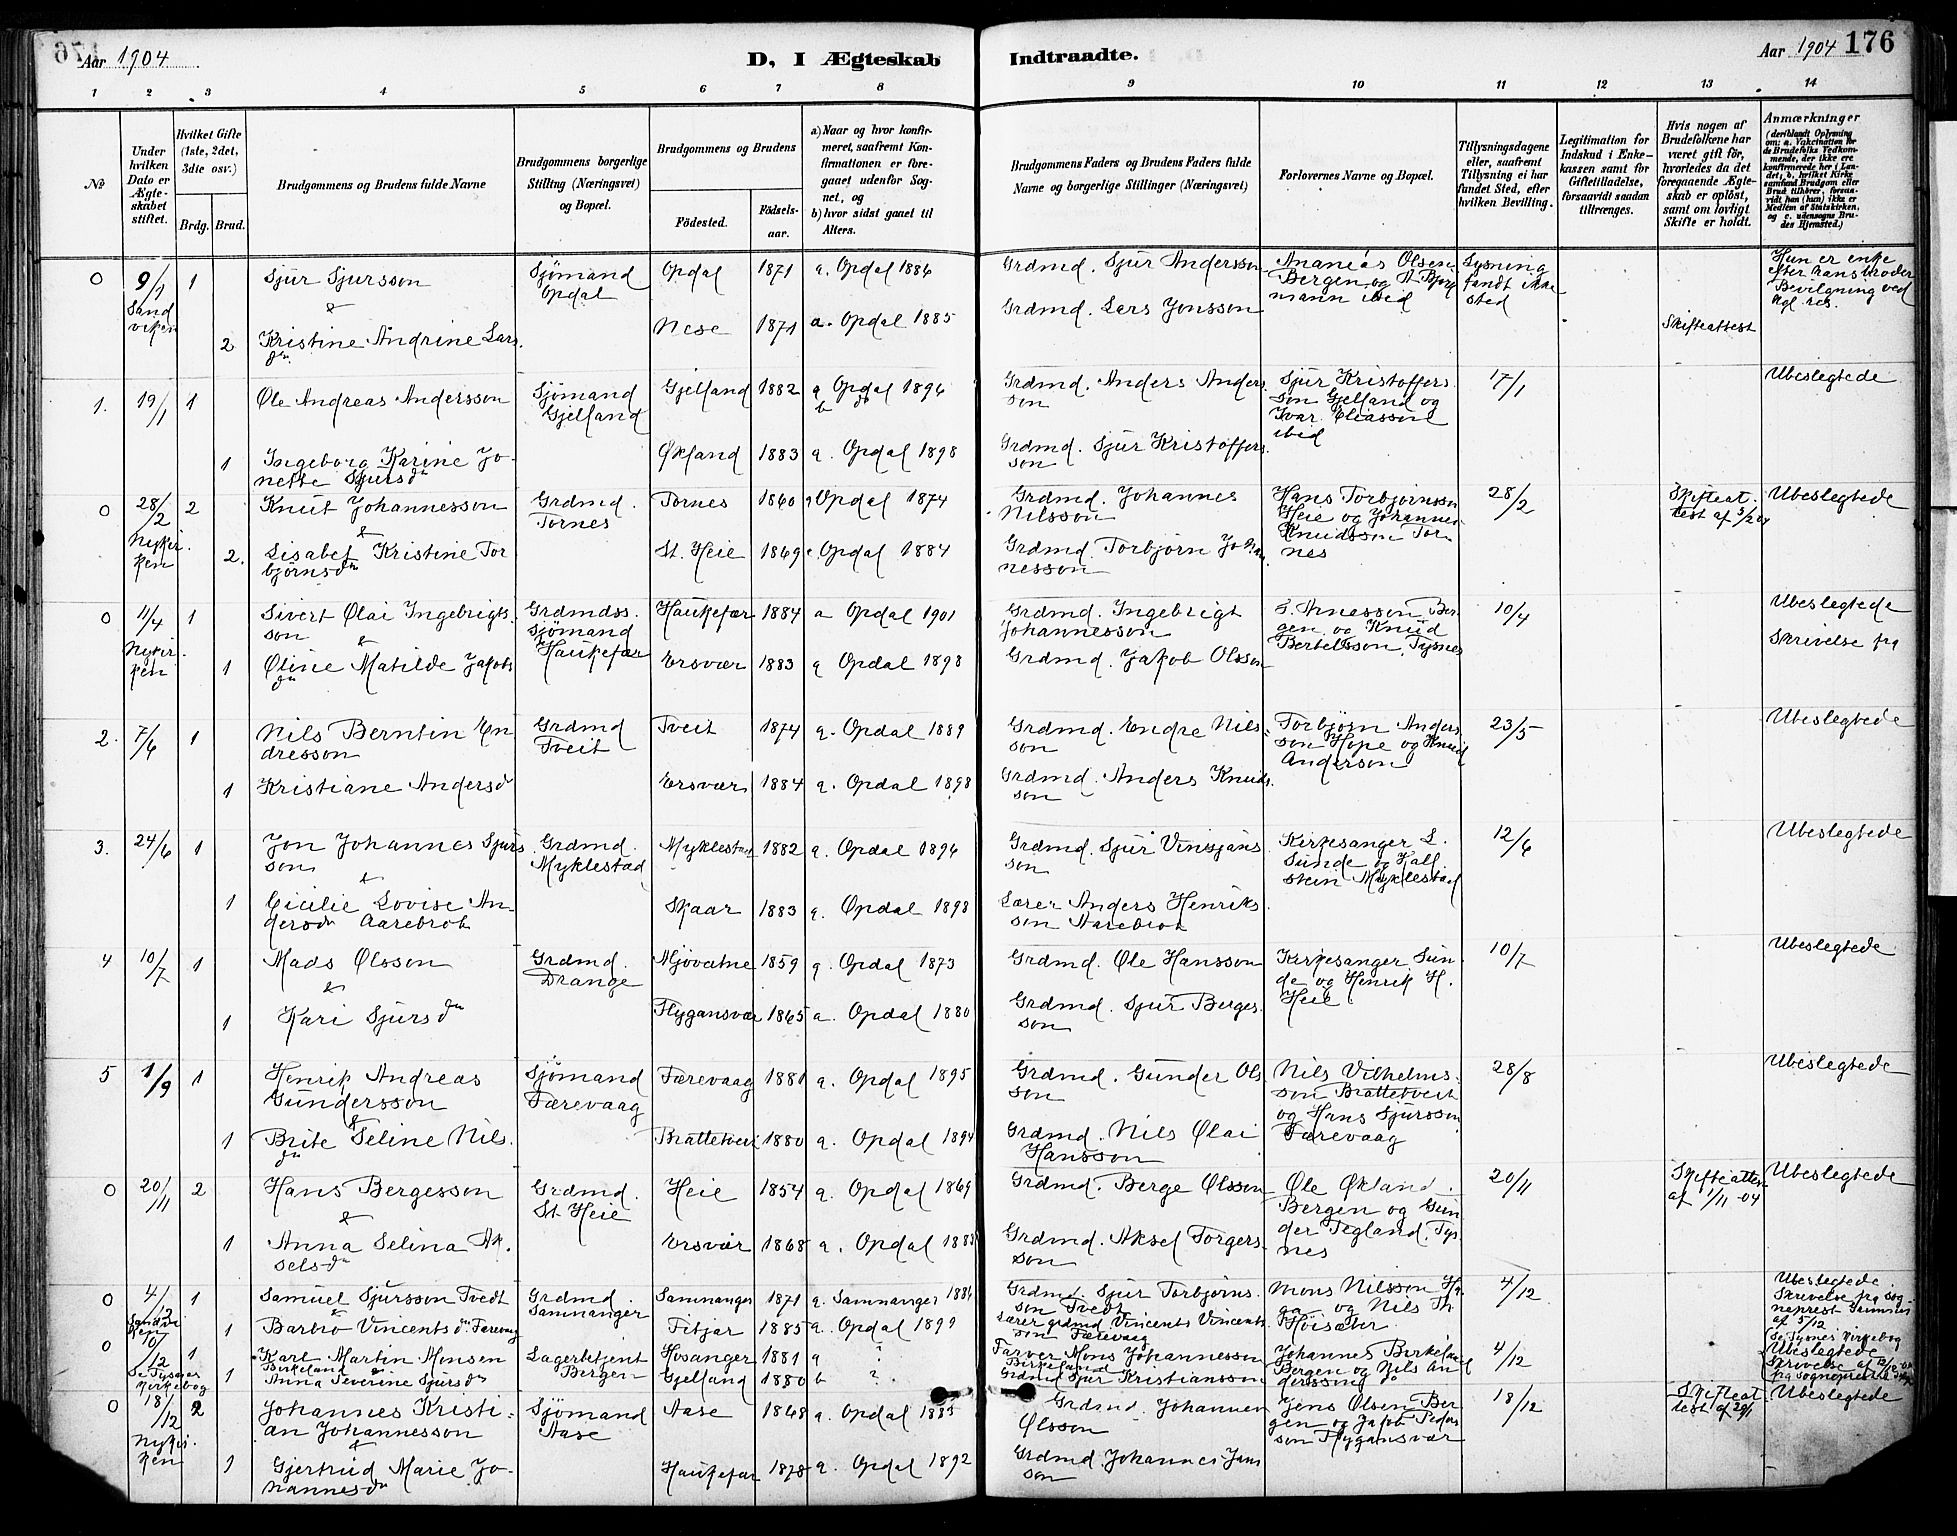 Aar 1904 D, I Ægteskab Indtraadte. Aar 1904 176
1 2 3 4 5 6 7 8 9 10 11 12 13 14
No
Under hvilken Dato er Ægteskabet stiftet.
Hvilket Gifte (1ste, 2det, 3die osv.)
Brdg. Brud.
Brudgommens og Brudens fulde Navne
Brudgommens borgerlige Stilling (Næringsvei) og Bopæl.
Brudgommens og Brudens
Fødested. Fødselsaar.
a) Naar og hvor konfirmeret, saafremt Konfirmationen er foregaaet udenfor Sognet, og
b) hvor sidst gaaet til Alters.
Brudgommens Faders og Brudens Faders fulde Navne og borgerlige Stillinger (Næringsvei)
Forlovernes Navne og Bopæl.
Tillysningsdagene eller, saafremt Tillysning ei har fundet Sted, efter hvilken Bevilling.
Legitimation for Indskud i Enkekassen samt for Giftetilladelse, forsaavidt saadan tiltrænges.
Hvis nogen af Brudefolkene har været gift før, hvorledes da det foregaaende Ægteskab er opløst, samt om lovligt Skifte er holdt.
Anmærkninger (deriblandt Oplysning om: a. Vakcination for de Brudefolks Vedkommende, der ikke ere konfirmerede her i Landet, b. hvilket Kirkesamfund Brudgom eller Brud tilhører, forsaavidt han (hun) ikke er Medlem af Statskirken, og c. udensogns Brudes Hjemsted.)
0 9/1 Sandviken 1 Sjur Sjursson Sjömand Opdal Opdal 1871 a. Opdal 1886 Grdmd. Sjur Andersson Ananias Olsen Bergen og A. mann ibid Lysning fandt ikke sted Hun er enke efter hans broder Bevilgning ved kgl. res.
&
2 Kristine Andrine Larsdn. Nese 1871 a. Opdal 1885 Grdmd. Lars Jonsson Skifteattest
1. 19/1 1 Ole Andreas Andersson Sjömand Gjelland Gjelland 1882 a Opdal 1896 b do Grdmd. Anders Andersson Sjur Kristoffersson Gjelland og Ivar Eliassen ibid 17/1 Ubeslegtede
1 Ingeborg Karine Jonette Sjursdn Økland 1883 a. Opdal 1898 Grdmd. Sjur Kristoffersson
0 28/2 Nykirken 2 Knut Johannesson Grdmd. Tornes Tornes 1860 a Opdal 1874 Grdmd. Johannes Nilsson Hans Torbjørnsson Heie og Johannes Knudsson Tornes 28/2 Skifteattest af 3/2 04 Ubeslegtede
&
2. Lisabet Kristine Torbjørnsdn St. Heie 1869 a Opdal 1884 Grdmd. Torbjørn Johannesson
0 11/4 Nykirken 1 Sivert Olai Ingebrigtsson Grdmdss. Sjömand Haukefær Haukefær 1884 a Opdal 1901 Grdmd. Ingebrigt Johannesson Arnesson Bergen og Knud Bertelsson, Tysnes 10/4 Ubeslegtede
Skrivelse fra
&
1 Oline Matilde Jakobsdn Ersvær 1883 a Opdal 1898 Grdmd. Jakob Olsson
2. 7/6 1 Nils Berntin Endresson Grdmd Tveit Tveit 1874 a. Opdal 1889 Grdmd. Endre Nilsson Torbjørn Andersson Hope og Knud Anderson 23/5 Ubeslegtede
1 Kristiane Andersd Ersvær 1884 a. Opdal 1898 Grdmd. Anders Knudsson
3. 24/6 1 Jon Johannes Sjursson Grdmd. Myklestad Myklestad 1882 a. Opdal 1896 Grdmd. Sjur Vinsjansson Kirkesanger L. Sunde og Kallstein Myklestad 12/6 Ubeslegtede
&
1 Cicilie Lovise Andersdn Aarebrot Skaar 1883 a. Opdal 1898 Lærer Anders Henriksson Aarebrot
4 10/7 1 Mads Olsson Grdmd. Drange Mjövatne 1859 a. Opdal 1873 Grdmd. Ole Hansson Kirkesanger Sunde og Henrik H. Heie 10/7 Ubeslegtede
&
1 Kari Sjursdn Flygansvær 1865 a. Opdal 1880 Grdmd. Sjur Bergesson
5 1/9 1 Henrik Andreas Gundersson Sjömand Færevaag Færevaag 1881 a. Opdal 1895 Grdmd. Gunder Olsson Nils Vilhelmsson Brattetveit og Hans Sjursson Færevaag 28/8 Ubeslegtede
&
1 Brite Seline Nilsdn Brattetveit 1880 a. Opdal 1894 Grdmd. Nils Olai Hansson
0 20/11 2 Hans Bergesson Grdmd. St. Heie Heie 1854 a. Opdal 1869 Grdmd. Berge Olsson Ole Økland. Bergen og Gunder Tegland, Tysnes 20/11 Skifteattest af 1/11 -04 Ubeslegtede
&
1 Anna Selina Akselsdn Ersvær 1868 a. Opdal 1883 Grdmd. Aksel Torgersson
0 4/12 Sandviken 1 Samuel Sjursson Tvedt Grdmd. Samnanger Samnanger 1871 a. Samnanger 1886 Grdmd. Sjur Torbjørnsson Tvedt Mons Nilsson Haga og Nils Th. Høisæter 4/12 Ubeslegtede. Skrivelse fra sogneprest af 5/12
&
1 Barbro Vincentsdn Færevaag Fitjar 1885 a. Opdal 1899 Lærer grdmd Vincents Vincentsson Færevaag
0 10/12 Se Tysnes kirkebog 1 Karl Martin Monsen Birkeland Lagerbetjent Bergen Hosanger 1881 a ? Farver Mons Johannesson Birkeland Johannes Birkeland Bergen og Nils Anderssen do 4/12 Se Tysnes Kirkebog Ubeslegtede Skrivelse af 12/12 fra sogneprest
1 Anna Severine Sjursdn Gjelland 1880 b ? Grdmd Sjur Kristiansson
0 18/12 Nykirken 2 Johannes Kristian Johannesson Sjömand Aase Aase 1868 a. Opdal 1883 Grdmd. Johannes Olsson Jens Olsen Bergen og Jakob Pedersson Flygansvær 18/12 Skifteattest af 29/1 Ubeslegtede
&
1 Gjertrud Marie Johannesdn Haukefær 1878 a. Opdal 1892 Grdmd. Johannes Jansson